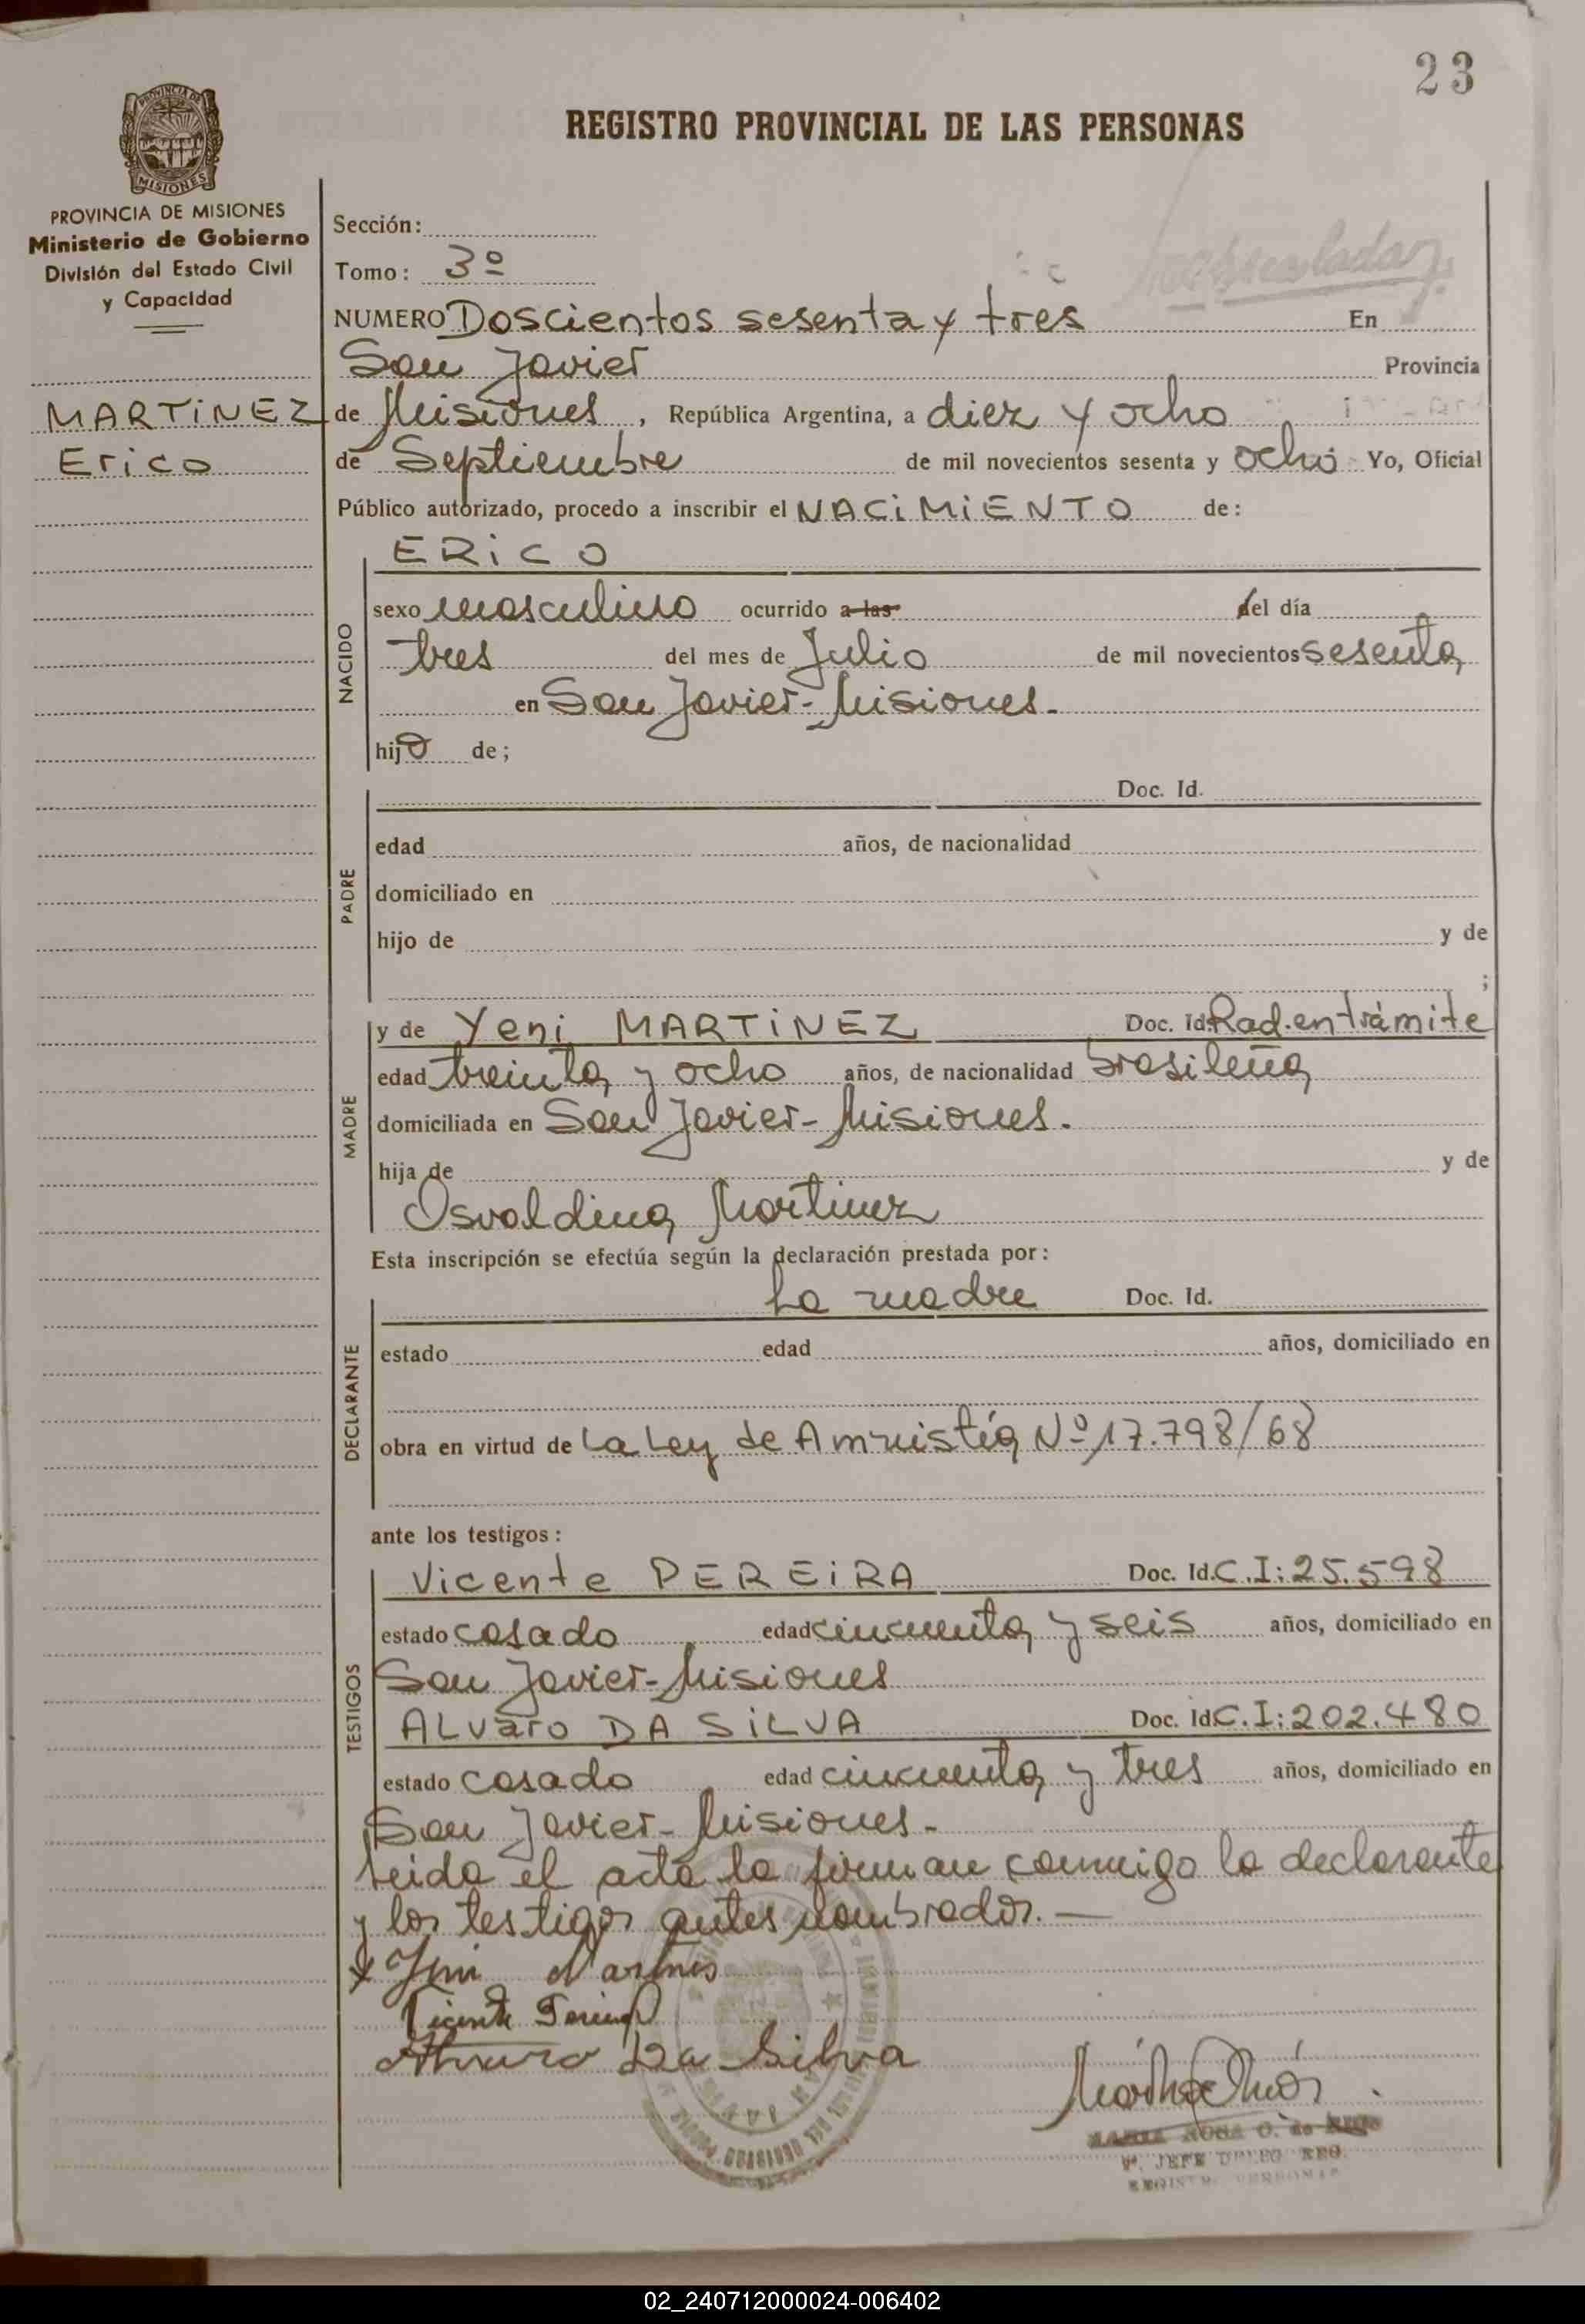 23
REGISTRO PROVINCIAL DE LAS PERSONAS
PROVINCIA DE MISIONES
Ministerio de Gobierno
División del Estado Civil
y Capacidad
MARTINEZ
Erico
Sección:
Tomo: 3º
NUMERO Doscientos sesenta y tres En
San Javier Provincia
de Misiones, República Argentina, a diez y ocho
de Septiembre de mil novecientos sesenta y ocho Yo, Oficial
Público autorizado, procedo a inscribir el NACIMIENTO de:
ERICO
NACIDO
sexo masculino ocurrido a las del día
tres del mes de Julio de mil novecientos sesenta
en San Javier-Misiones.
hijo de;
PADRE
Doc. Id.
edad años, de nacionalidad
domiciliado en
hijo de y de
;
MADRE
y de Yeni MARTINEZ Doc. Id. Rad. en trámite
edad treinta y ocho años, de nacionalidad brasileña
domiciliada en San Javier-Misiones.
hija de y de
Osvaldina Martinez
Esta inscripción se efectúa según la declaración prestada por:
DECLARANTE
La madre Doc. Id.
estado edad años, domiciliado en
obra en virtud de La Ley de Amnistía Nº 17.798/68
ante los testigos:
TESTIGOS
Vicente PEREIRA Doc. Id. C.I: 25.598
estado casado edad cincuenta y seis años, domiciliado en
San Javier-Misiones
ALvaro DA SILVA Doc. Id. C.I: 202.480
estado casado edad cincuenta y tres años, domiciliado en
San Javier-Misiones.
Leida el acta la firman conmigo la declarante
y los testigos antes nombrados.—
Alvaro Da Silva
02_240712000024-006402